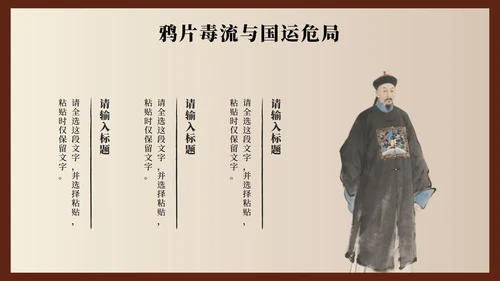 鸦片毒流与国运危局
请输入标题
请全选这段文字,并选择粘贴,
粘贴时仅保留文字。
请输入标题
请全选这段文字,并选择粘贴,
粘贴时仅保留文字。
请输入标题
请全选这段文字,并选择粘贴,
粘贴时仅保留文字。